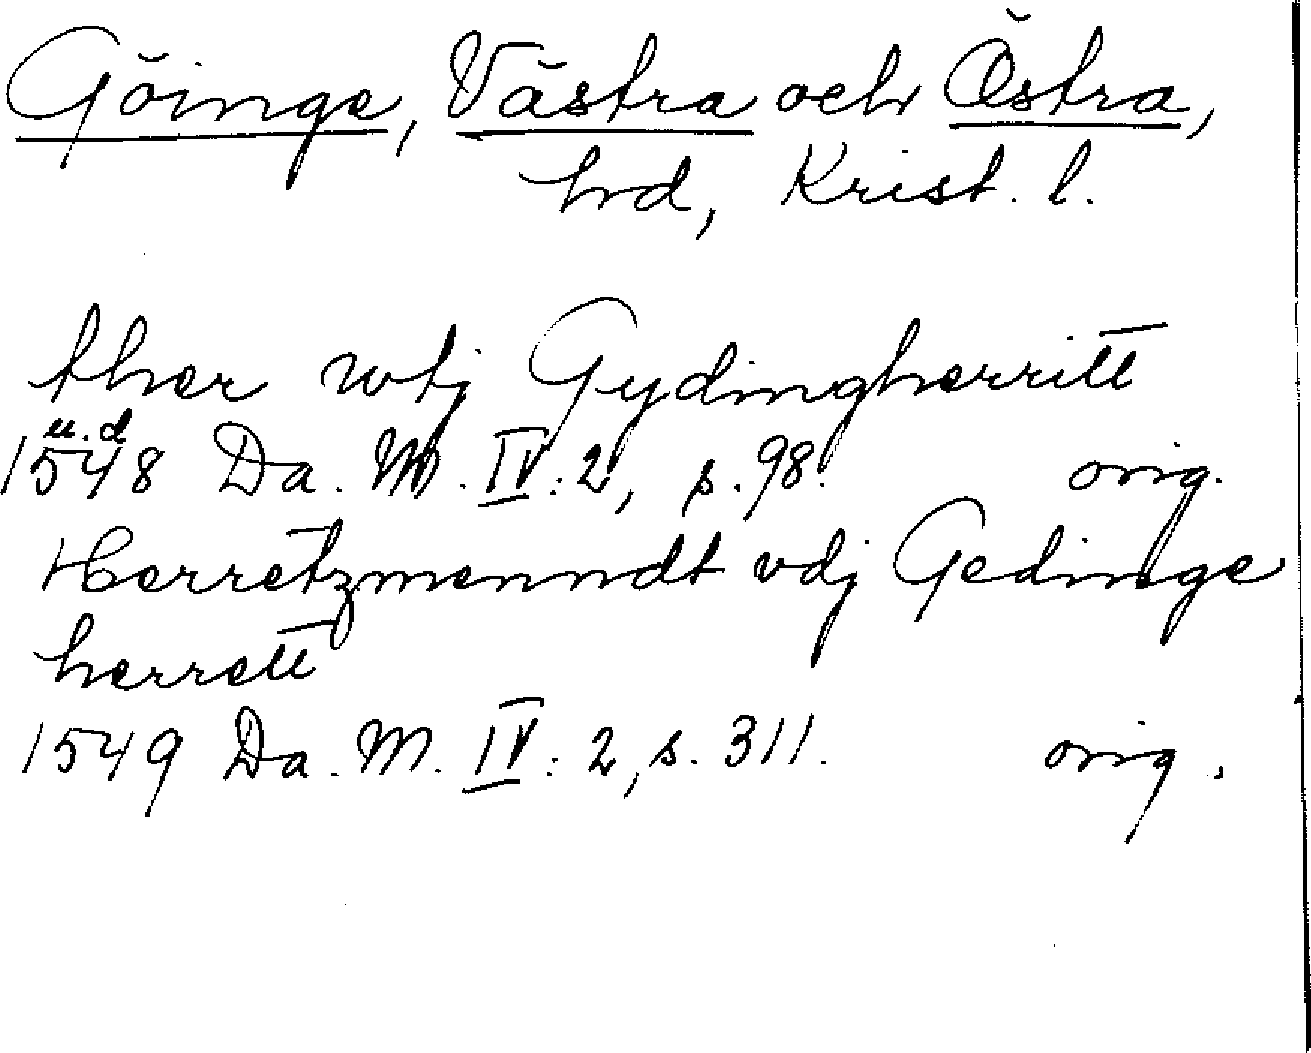 Göinge, Västra och Östra,
hd, Krist. l.
ther wtj Gydingherritt
u.d
1548 Da. M. IV: 2, s. 98. orig.
Herretzmenndt vdj Gedinge
herrett
1549 Da. M. IV: 2, s. 311. orig.